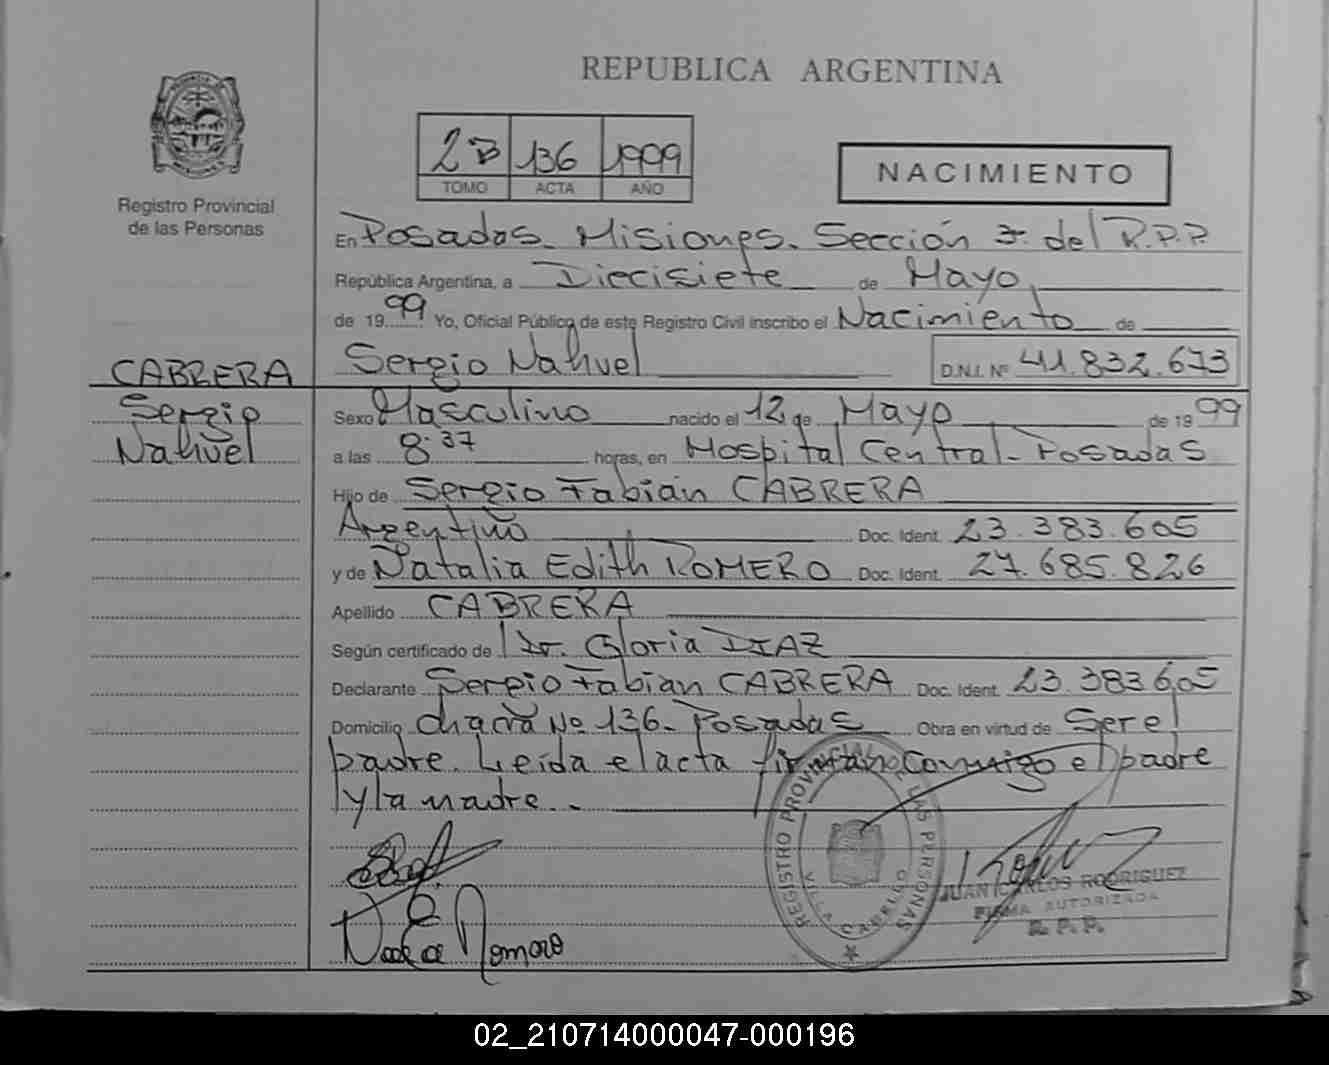 REPUBLICA ARGENTINA
Registro Provincial
de las Personas
2B 136 1999
TOMO ACTA AÑO
NACIMIENTO
En Posadas. Misiones. Sección 3ª del R.P.P.
República Argentina, a Diecisiete de Mayo
de 1999 Yo, Oficial Público de este Registro Civil inscribo el Nacimiento de
Sergio Nahuel D.N.I. Nº 41.832.673
CABRERA
Sergio
Nahuel
Sexo Masculino nacido el 12 de Mayo de 1999
a las 8:37 horas, en Hospital Central - Posadas
Hijo de Sergio Fabián CABRERA
Argentino Doc. Ident. 23.383.605
y de Natalia Edith ROMERO Doc. Ident. 27.685.826
Apellido CABRERA
Según certificado de Dr. Gloria DIAZ
Declarante Sergio Fabian CABRERA Doc. Ident. 23.383.605
Domicilio chacra Nº 136 - Posadas Obra en virtud de Ser el
padre. Leída el acta firman conmigo el padre
y la madre.-
REGISTRO PROVINCIAL DE LAS PERSONAS
VILLA CABELLO
JUAN CARLOS RODRIGUEZ
FIRMA AUTORIZADA
R. P. P.
Romero
02_210714000047-000196